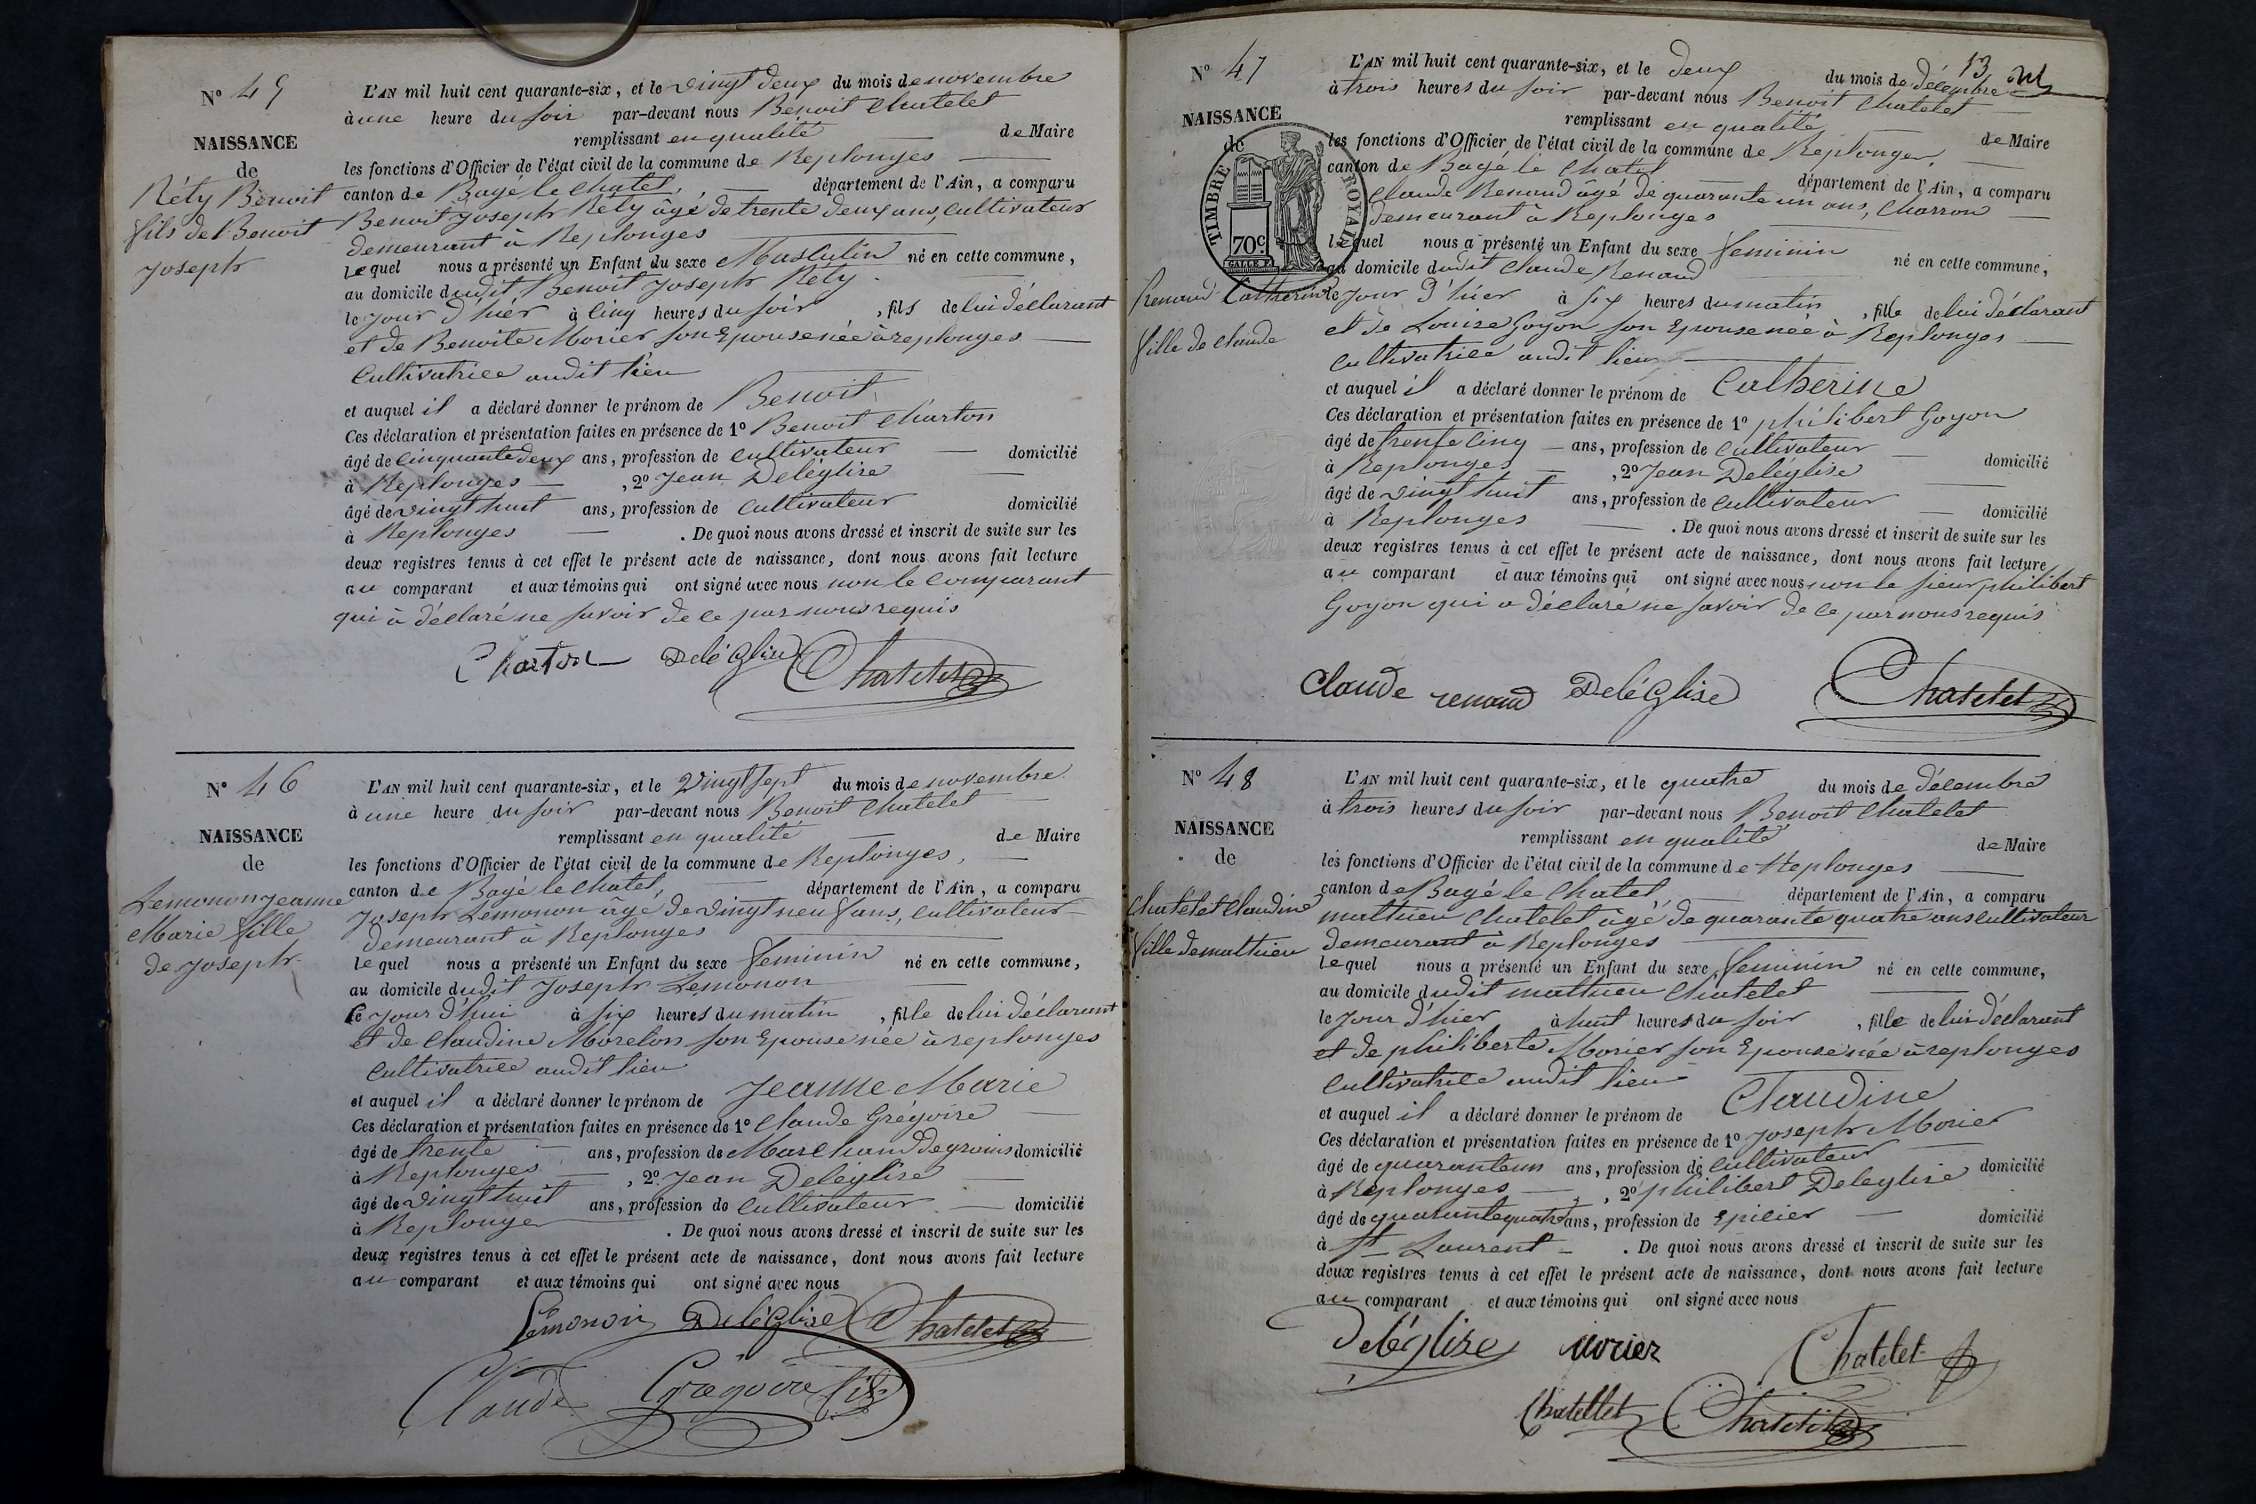 Nº 45
NAISSANCE
de
Réty Benoit
fils de Benoit
Joseph
L'AN mil huit cent quarante-six, et le vingt deux du mois de novembre
à une heure du soir par-devant nous Benoit Chatelet
remplissant en qualité de Maire
les fonctions d'Officier de l'état civil de la commune de Replonges
canton de Bagé le Chatel, département de l'Ain, a comparu
Benoit Joseph Réty âgé de trente deux ans, cultivateur
demeurant à Replonges
lequel nous a présenté un Enfant du sexe Masculin né en cette commune,
au domicile dudit Benoit Joseph Réty
le jour d'hier à cinq heures du soir, fils de lui déclarant
et de Benoite Morier son Epouse née à replonges
Cultivatrice audit lieu
et auquel il a déclaré donner le prénom de Benoit
Ces déclaration et présentation faites en présence de 1º Benoit Charton
âgé de cinquante deux ans, profession de cultivateur domicilié
à Replonges, 2º Jean Deléglise
âgé de vingt huit ans, profession de cultivateur domicilié
à Replonges. De quoi nous avons dressé et inscrit de suite sur les
deux registres tenus à cet effet le présent acte de naissance, dont nous avons fait lecture
au comparant et aux témoins qui ont signé avec nous non le comparant
qui à déclaré ne savoir de ce par nous requis
Charton Deléglise Chatelet
Nº 46
NAISSANCE
de
Lemonon Jeanne
Marie fille
de Joseph
L'AN mil huit cent quarante-six, et le vingt sept du mois de novembre
à une heure du soir par-devant nous Benoit Chatelet
remplissant en qualité de Maire
les fonctions d'Officier de l'état civil de la commune de Replonges,
canton de Bagé le Chatel, département de l'Ain, a comparu
Joseph Lemonon âgé de vingt neuf ans, cultivateur
demeurant à Replonges
lequel nous a présenté un Enfant du sexe feminin né en cette commune,
au domicile dudit Joseph Lemonon
le jour d'hui à six heures du matin, fille de lui déclarant
et de Claudine Morelon son Epouse née à replonges
Cultivatrice audit lieu
et auquel il a déclaré donner le prénom de Jeanne Marie
Ces déclaration et présentation faites en présence de 1º Claude Grégoire
âgé de trente ans, profession de Marchand de grains domicilié
à Replonges, 2º Jean Deléglise
âgé de vingt huit ans, profession de Cultivateur domicilié
à Replonges. De quoi nous avons dressé et inscrit de suite sur les
deux registres tenus à cet effet le présent acte de naissance, dont nous avons fait lecture
au comparant et aux témoins qui ont signé avec nous
Lémonon Deléglise Chatelet
Claude Gregoire fils
13
Nº 47
NAISSANCE
de
TIMBRE ROYAL
70c.
Renaud Catherine
fille de Claude
L'AN mil huit cent quarante-six, et le deux du mois de décembre
à trois heures du soir par-devant nous Benoit Chatelet
remplissant en qualité de Maire
les fonctions d'Officier de l'état civil de la commune de Replonges,
canton de Bagé le Chatel département de l'Ain, a comparu
Claude Renaud âgé de quarante un ans, Charron
demeurant à Replonges
lequel nous a présenté un Enfant du sexe feminin né en cette commune,
au domicile dudit Claude Renaud
le jour d'hier à six heures du matin, fille de lui déclarant
et de Louise Goyon son Epouse née à Replonges
Cultivatrice audit lieu
et auquel il a déclaré donner le prénom de Catherine
Ces déclaration et présentation faites en présence de 1º philibert Goyon
âgé de trente cinq ans, profession de cultivateur domicilié
à Replonges, 2º Jean Deléglise
âgé de vingt huit ans, profession de cultivateur domicilié
à Replonges. De quoi nous avons dressé et inscrit de suite sur les
deux registres tenus à cet effet le présent acte de naissance, dont nous avons fait lecture
au comparant et aux témoins qui ont signé avec nous non le sieur philibert
Goyon qui a déclaré ne savoir de ce par nous requis
Claude renaud Deléglise Chatelet
Nº 48
NAISSANCE
de
Chatelet Claudine
fille de mathieu
L'AN mil huit cent quarante-six, et le quatre du mois de décembre
à trois heures du soir par-devant nous Benoit Chatelet
remplissant en qualité de Maire
les fonctions d'Officier de l'état civil de la commune de Replonges
canton de Bagé le Chatel, département de l'Ain, a comparu
mathieu Chatelet âgé de quarante quatre ans cultivateur
demeurant à Replonges
lequel nous a présenté un Enfant du sexe feminin né en cette commune,
au domicile dudit mathieu Chatelet
le jour d'hier à huit heures du soir, fille de lui déclarant
et de philiberte Morier son Epouse née à replonges
Cultivatrice audit lieu
et auquel il a déclaré donner le prénom de Claudine
Ces déclaration et présentation faites en présence de 1º Joseph Morier
âgé de quarante un ans, profession de cultivateur domicilié
à Replonges, 2º philibert Deleglise
âgé de quarante quatre ans, profession de Epicier domicilié
à St Laurent. De quoi nous avons dressé et inscrit de suite sur les
deux registres tenus à cet effet le présent acte de naissance, dont nous avons fait lecture
au comparant et aux témoins qui ont signé avec nous
Deléglise morier Chatelet
Chatellet Chatelet